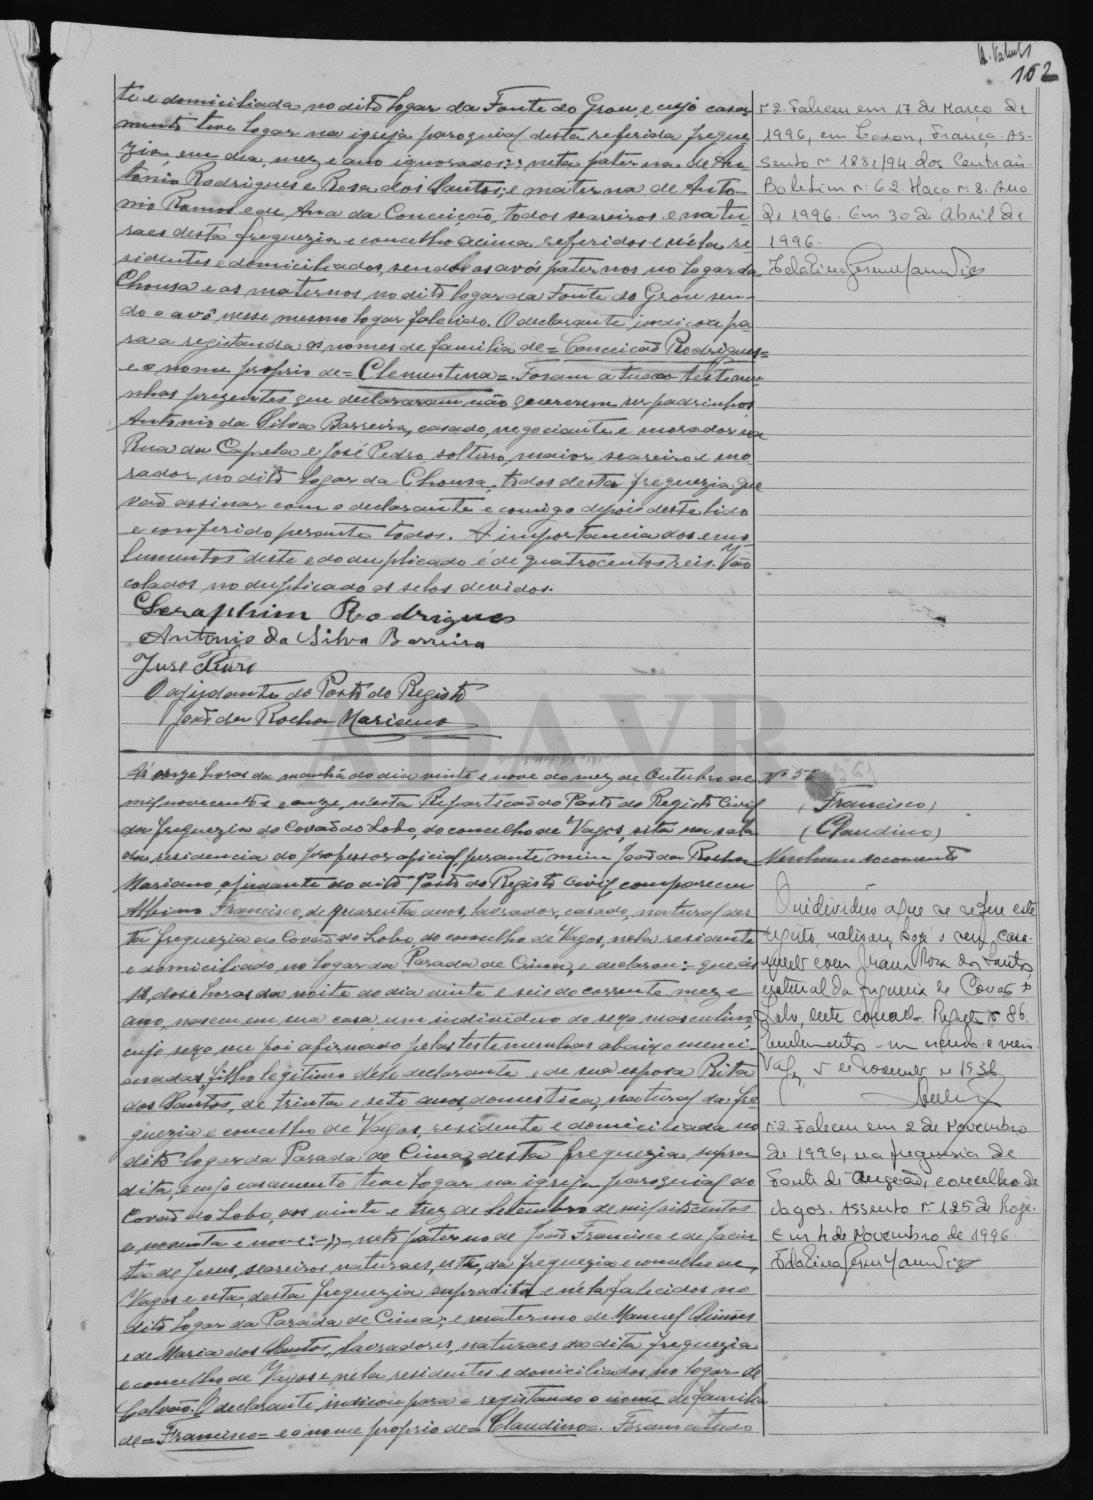 102
te e domiciliada no dito logar da Fonte do Grou, e cujo casa-
mento teve logar na igreja paroquial desta referida fregue-
zia, em dia, mez e ano ignorados; neta paterna de An-
tonio Rodrigues e Rosa dos Santos; e materna de Anto-
nio Ramos e de Ana da Conceição, todos seareiros e natu-
raes desta freguezia e concelho acima referidos e néla re-
sidentes e domiciliados, sendo os avós paternos no logar da
Chousa e os maternos no dito logar da Fonte do Grou sen-
do o avô nesse mesmo logar falecido. O declarante indicou pa-
ra a registanda os nomes de familia de = Conceição Rodrigues =
e o nome proprio de = Clementina =. Foram a tudo testemu-
nhas prezentes que declararam não quererem ser padrinhos
Antonio da Silva Barreira, casado, negociante e morador na
Rua da Capela e José Pedro, solteiro, maior, seareiro e mo-
rador no dito logar da Chousa, todos desta freguezia que
vão assinar com o declarante e comigo depois deste lido
e conferido perante todos. A importancia dos emo-
lumentos deste e do duplicado é de quatrocentos réis. Vão
colados no duplicado os selos devidos.
Seraphim Rodrigues
Antonio da Silva Barreira
José
O ajudante do Posto do Registo
João da Rocha Mariano
nº 2. Faleceu em 17 de Março de
1996, em França. As-
sento nº 1831/94 dos Centrais.
Boletim nº 62. Maço nº 8. Ano
de 1996. Em 30 de Abril de
1996.
Ás onze horas da manhã do dia vinte e nove do mez de Outubro de
mil novecentos e onze, n'esta Repartição do Posto do Registo Civil
da freguezia do Covão do Lobo, do concelho de Vagos, sita na sala
da residencia do professor oficial, perante mim João da Rocha
Mariano, ajudante do dito Posto do Registo Civil, compareceu
Albino Francisco, de quarenta anos, lavrador, casado, natural des-
ta freguezia do Covão do Lobo, do concelho de Vagos, nela residente
e domiciliado, no logar da Parada de Cima, e declarou: que ás
12, doze horas da noite do dia vinte e seis do corrente mez e
ano, nasceu em sua casa, um individuo do sexo masculino,
cujo sexo me foi afirmado pelas testemunhas abaixo menci-
onadas, filho legitimo dele declarante e de sua esposa Rita
dos Santos, de trinta e sete anos, domestica, natural da fre-
guezia e concelho de Vagos, residente e domiciliada no
dito logar da Parada de Cima, desta freguezia supra
dita, e cujo casamento teve logar na igreja paroquial do
Covão do Lobo, aos vinte e trez de Setembro de mil oitocentos
e noventa e nove; neto paterno de João Francisco e de Jacin-
ta de Jesus, seareiros, naturaes, este, da freguezia e concelho de
Vagos e esta, desta freguezia supradita e néla falecidos no
dito logar da Parada de Cima; e materno de Manuel Simões
e de Maria dos Santos, lavradores, naturaes da dita freguezia
e concelho de Vagos e nela residentes e domiciliados no logar de
Calvão. O declarante indicou para o registando o nome de familia
de = Francisco = e o nome proprio de = Claudino =. Foram a tudo
Nº 56
(Francisco)
(Claudino)
Nenhum documento
O individuo a que se refere este
registo, realisou hoje o seu casa-
mento com Maria Rosa dos Santos,
natural da freguezia de Covão do
Lobo, deste concelho. Registo nº 86.
Vagos, 5 de Novembro de 1936
nº 2. Faleceu em 2 de Novembro
de 1996, na freguesia de
Fonte de Angeão, concelho de
Vagos. Assento nº 125 de hoje.
Em 4 de Novembro de 1996.
ADAVR